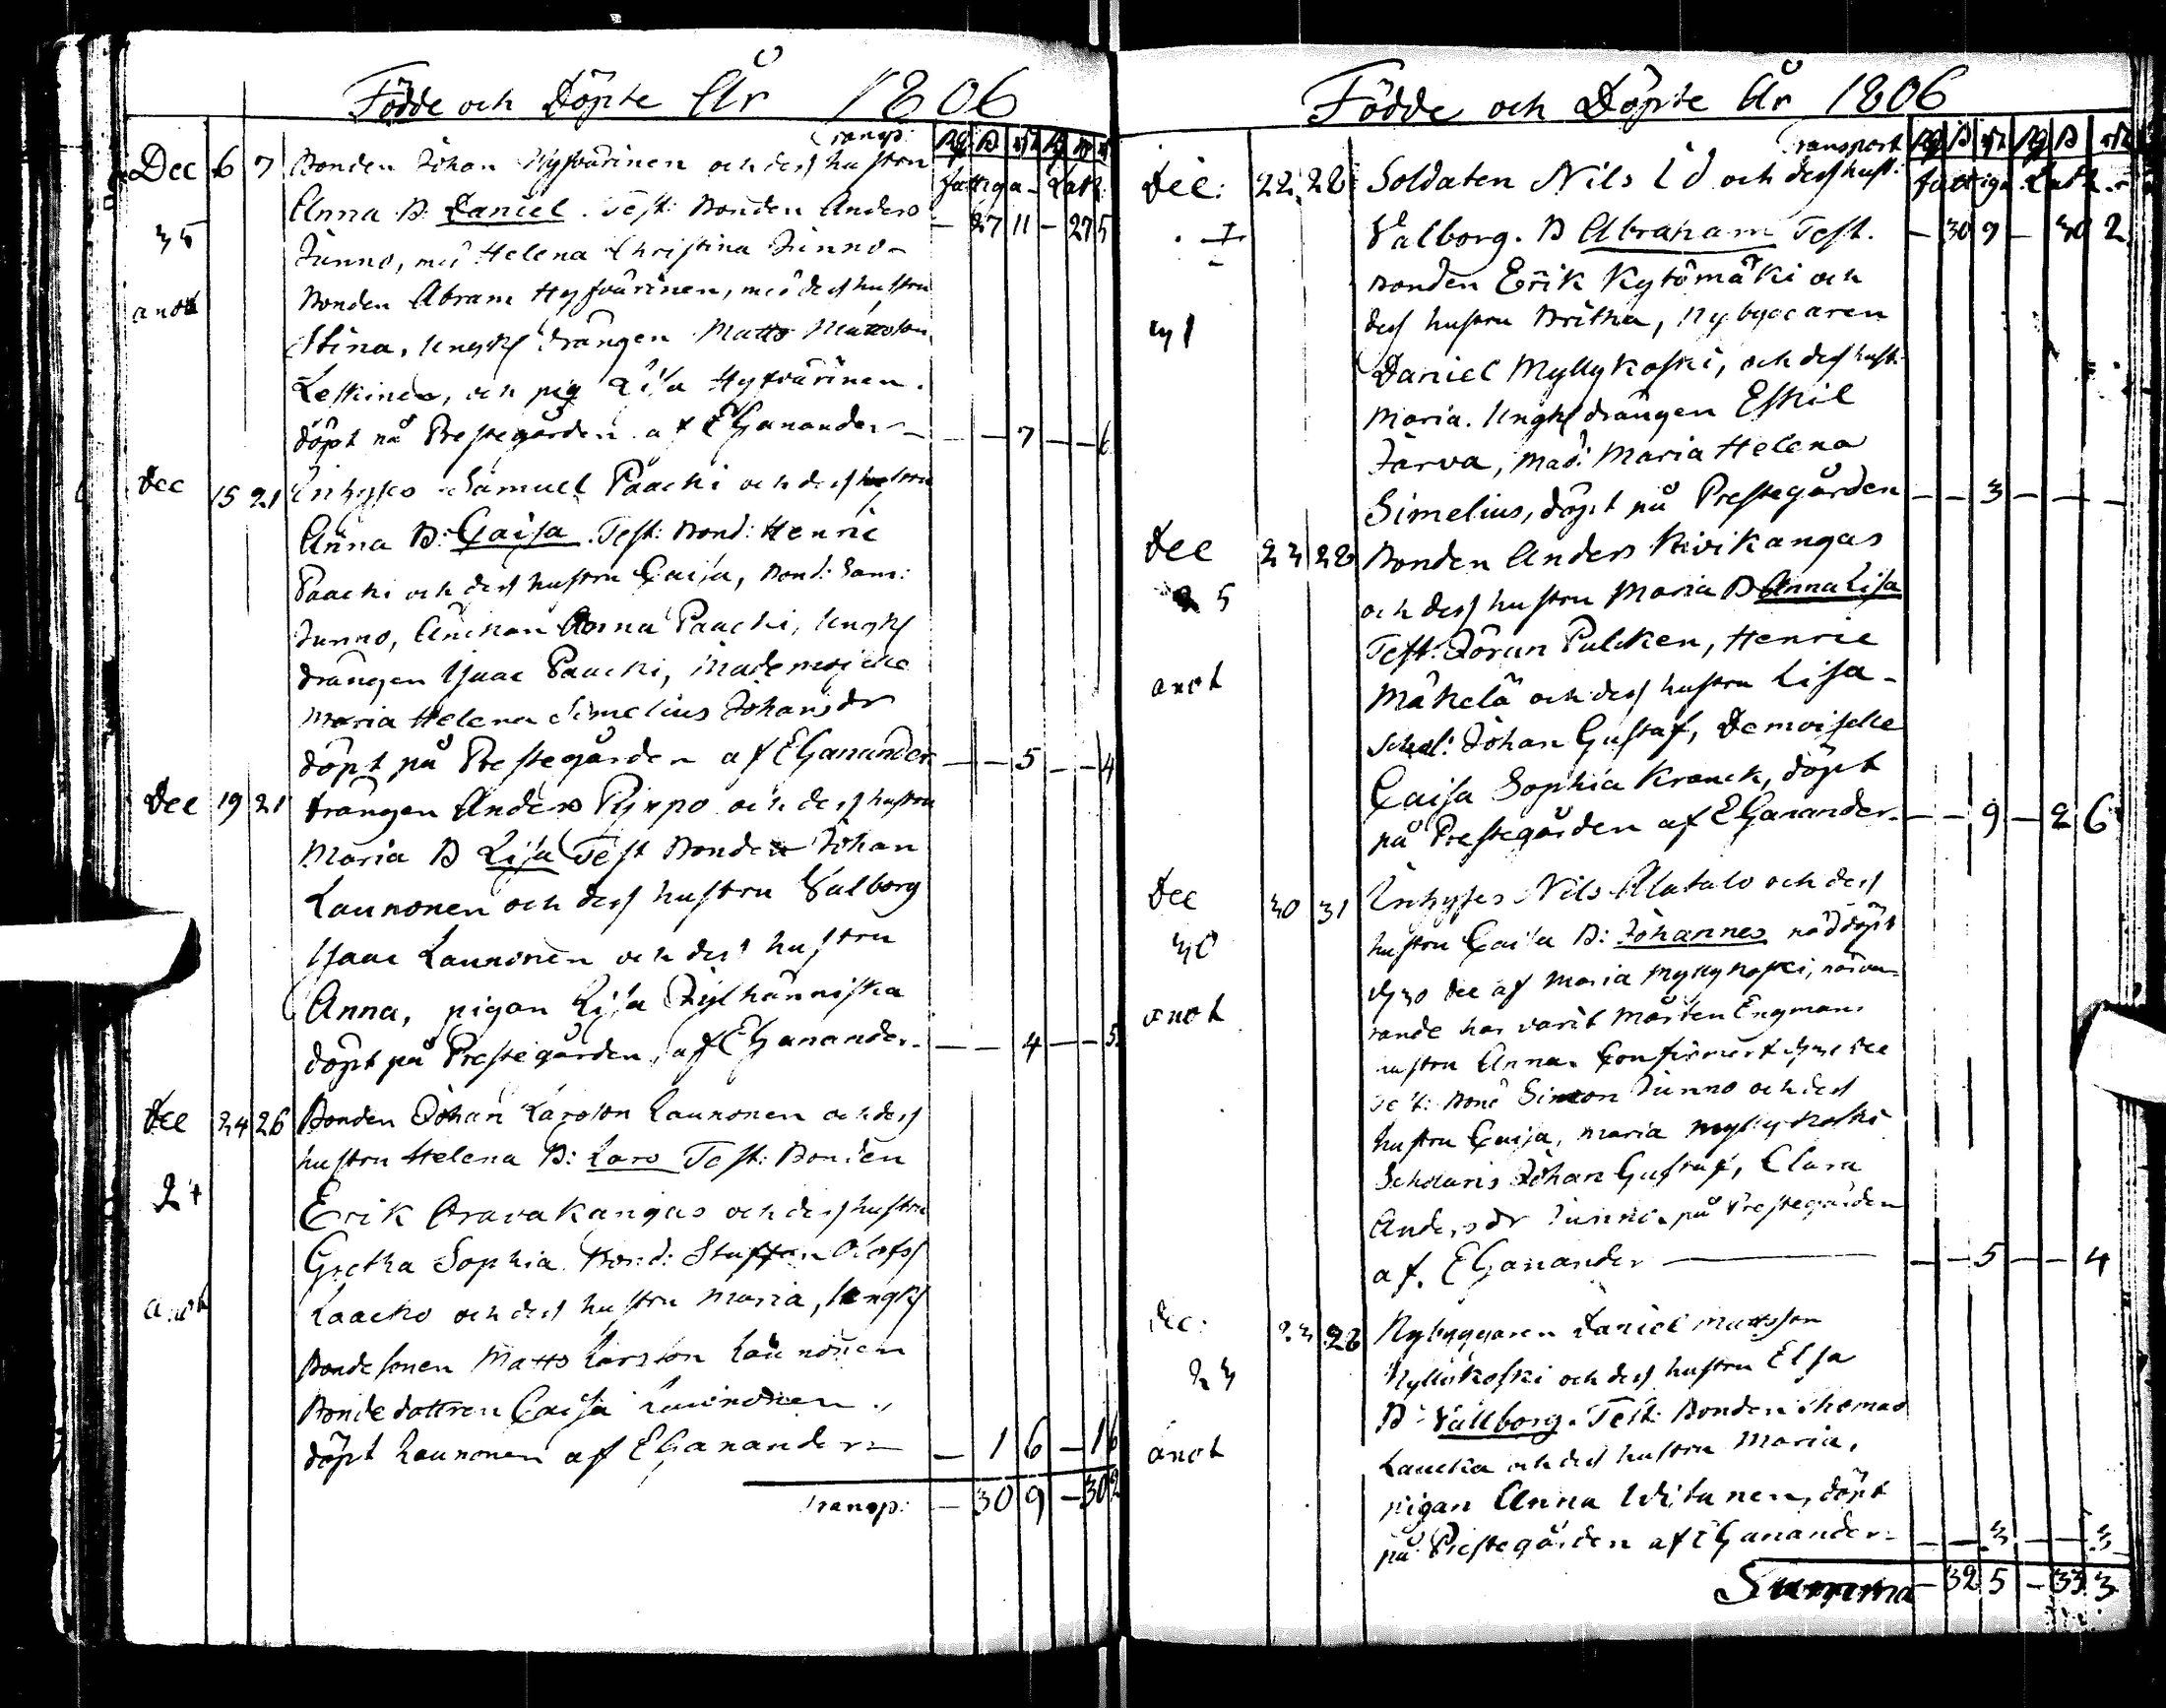 Födde och Döpte År 1806
Transp:
Dec 6 7 Bonden Johan Hyfvärinen och dess hustru
fattiga - Lasr:
Anna B: Daniel. Test: Bonden Anders — 27 11 — 27 5
35
Junno, mö Helena Christina Junno
Bonden Abram Hyfvärinen, mö dess hustru
anot
Stina, ungk drängen Matts Mattsson
Leskinen, och pig Lisa Hyfvärinen.
döpt på Prestegården af EGanander — — 7 — — 6
Dec 15 21 Inhyses Samuel Paacki och dess hustru
Anna B: Caisa. Test: Bond: Henric
Paacki och dess hustru Caisa, Bond: Sam:
Junno, Änckan Anna Paacki, Ungk
drängen Isaac Paacki, Mademoiselle
Maria Helena Simelius Johansdr
döpt på Prestegården af EGanander — — 5 — — 4
Dec 19 21 drängen Anders Pijppo och dess hustru
Maria B Lisa Test Bonden Johan
Launonen och dess hustru Valborg
Isaac Launonen och dess hustru
Anna, pigan Lisa
döpt på Prestegården, af EGanander — — 4 — — 5
Dec 24 26 Bonden Johan Larsson Launonen och dess
hustru Helena B: Lars Test: Bonden
24
Erik Aravakangas och dess hustru
Gretha Sophia Bond: Staffan Olofss
anot
Laacko och dess hustru Maria, Ungk
Bondesonen Matts Larsson Launonen
Bondedottren Caisa Launonen.,
döpt Launonen af EGanander — 1 6 — 1 6
Transp: — 30 9 — 30 2
Födde och Döpte År 1806
Transport
Dec: 22 28 Soldaten Nils Id och dess hust: fattiga Lasr
Valborg. B Abraham Test. — 30 9 — 30 2
Bonden Erik Kytömäki och
dess hustru Britha, Nybyggaren
Daniel Myllykoski, och dess hust:
Maria. Ungk drängen Eskil
Järva, Mad: Maria Helena
Simelius, döpt på Prestegården — — 3 — — —
Dec 23 28 Bonden Anders Kivikangas
och dess hustru Maria B Anna Lisa
25
Test: Jöran Pulcken, Henric
anot
Mäkelä och dess hustru Lisa -
Schol: Johan Gustaf, Demoiselle
Caisa Sophia Kranck, döpt
på Prestegården af EGanander — — 9 — 2 6
Dec 30 31 Inhyses Nils Alatalo och dess
hustru Caisa B: Johannes nöddöpt
30
d 30 Dec af Maria Myllykoski, närva-
anot
rande har varit Mårten Engmans
hustru Anna. Confirmert d 31 Dec
Test: Bond Simon Junno och dess
hustru Caisa, Maria Myllykoski
Scholaris Johan Gustaf, Clara
Andersdr Junno på Prestegården
af. EGanander — — 5 — — 4
Dec: 23 28 Nybyggaren Daniel Mattsson
Myllykoski och dess hustru Elsa
23
B: Vallborg. Test: Bonden Thomas
anot
Laucka och dess hustru Maria,
pigan Anna Witanen, döpt
på Prestegården af EGanander — — 3 — — 3
Summa — 32 5 — 33 3